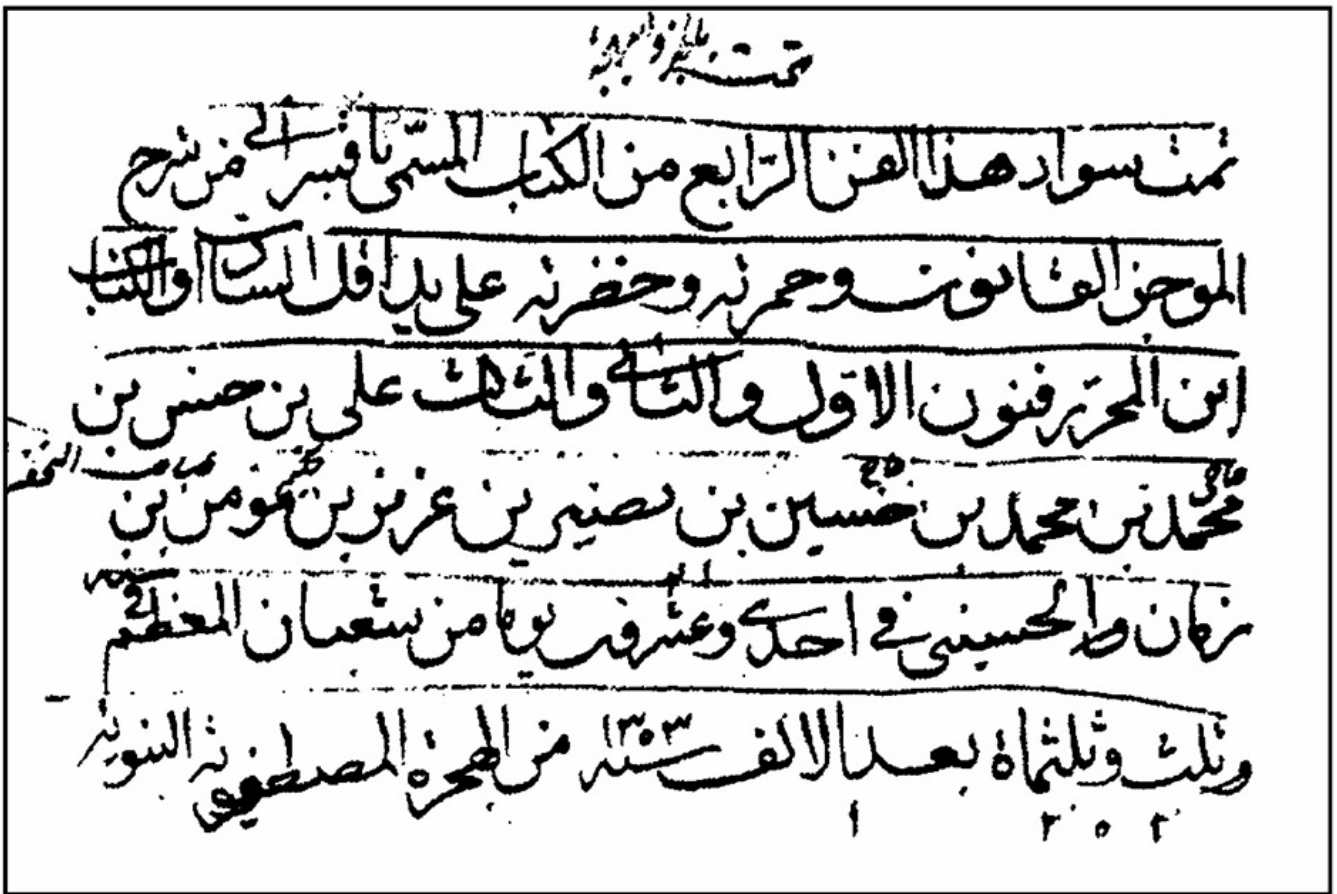 تمت بالخير والعافية
تمت سواد هذا الفن الرابع من الكتاب المسمى باقسرائي من شرح
الموجز القانون وحمرته وخضرته على يد اقل السادات والكتاب
ابن المحرر فنون الاول والثاني والثالث علي بن حسن بن
محمد بن محمد بن حسين بن نصير بن عزيز بن مومن بن
زمان الحسيني في احدى وعشرون يوما من شعبان المعظم
وثلث وثلثماة بعد الالف سنه ١٣٥٣ من الهجرة المصطفوية النبوية